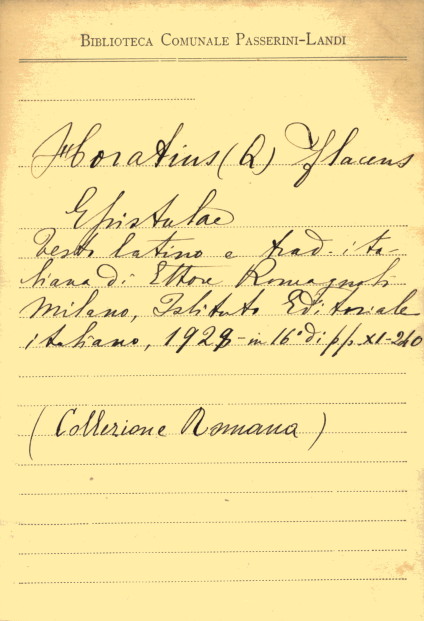 BIBLIOTECA COMUNALE PASSERINI-LANDI
Horatius (Q) Flaccus
Epistulae
Testo latino e trad. ita-
liana di Ettore Romagnoli
Milano, Istituto Editoriale
italiano, 1928 - in 16° di pp. XI-240
(Collezione Romana)